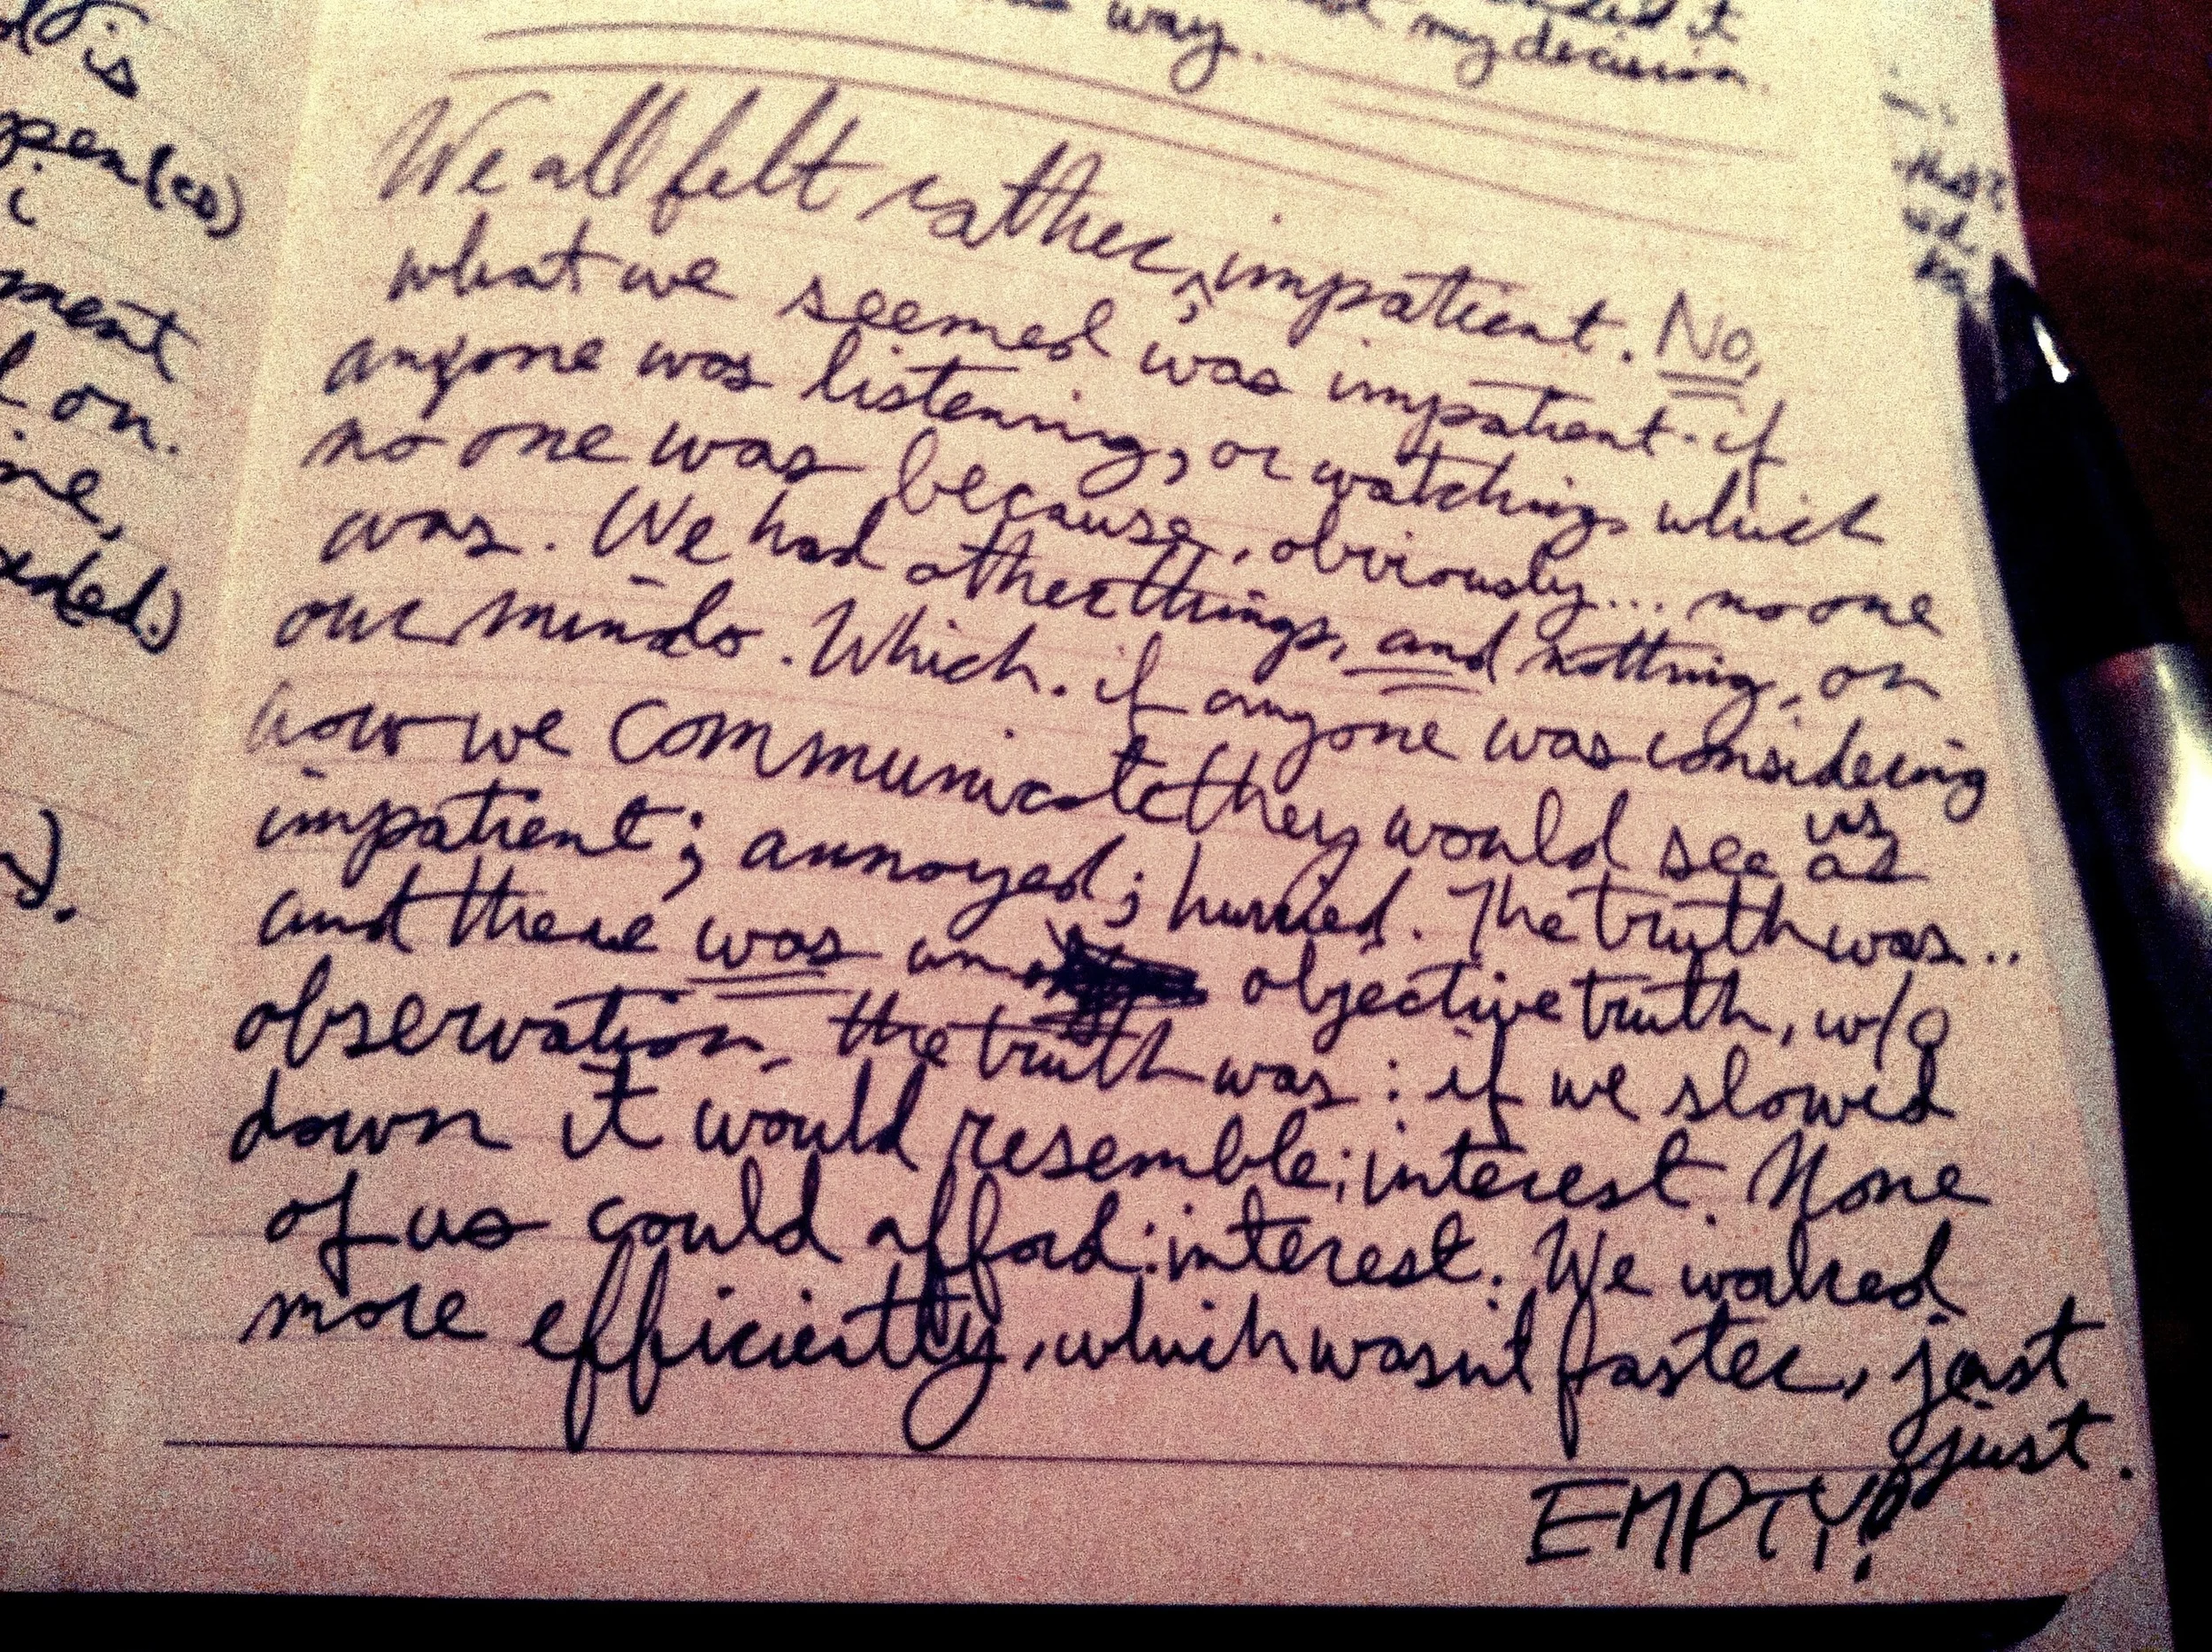 way. my decision.
We all felt rather, impatient. No,
what we seemed was impatient. if
anyone was listening, or watching, which
no one was because, obviously... no one
was. We had other things, and nothing, on
our minds. Which. if anyone was considering
how we communicate they would see us as
impatient; annoyed; hurried. The truth was...
and there was an objective truth, w/o
observation, the truth was: if we slowed
down it would resemble; interest. None
of us could afford: interest. We walked
more efficiently, which wasn't faster, just
just.
EMPTY?
is
pen(cs)
i
ment
on.